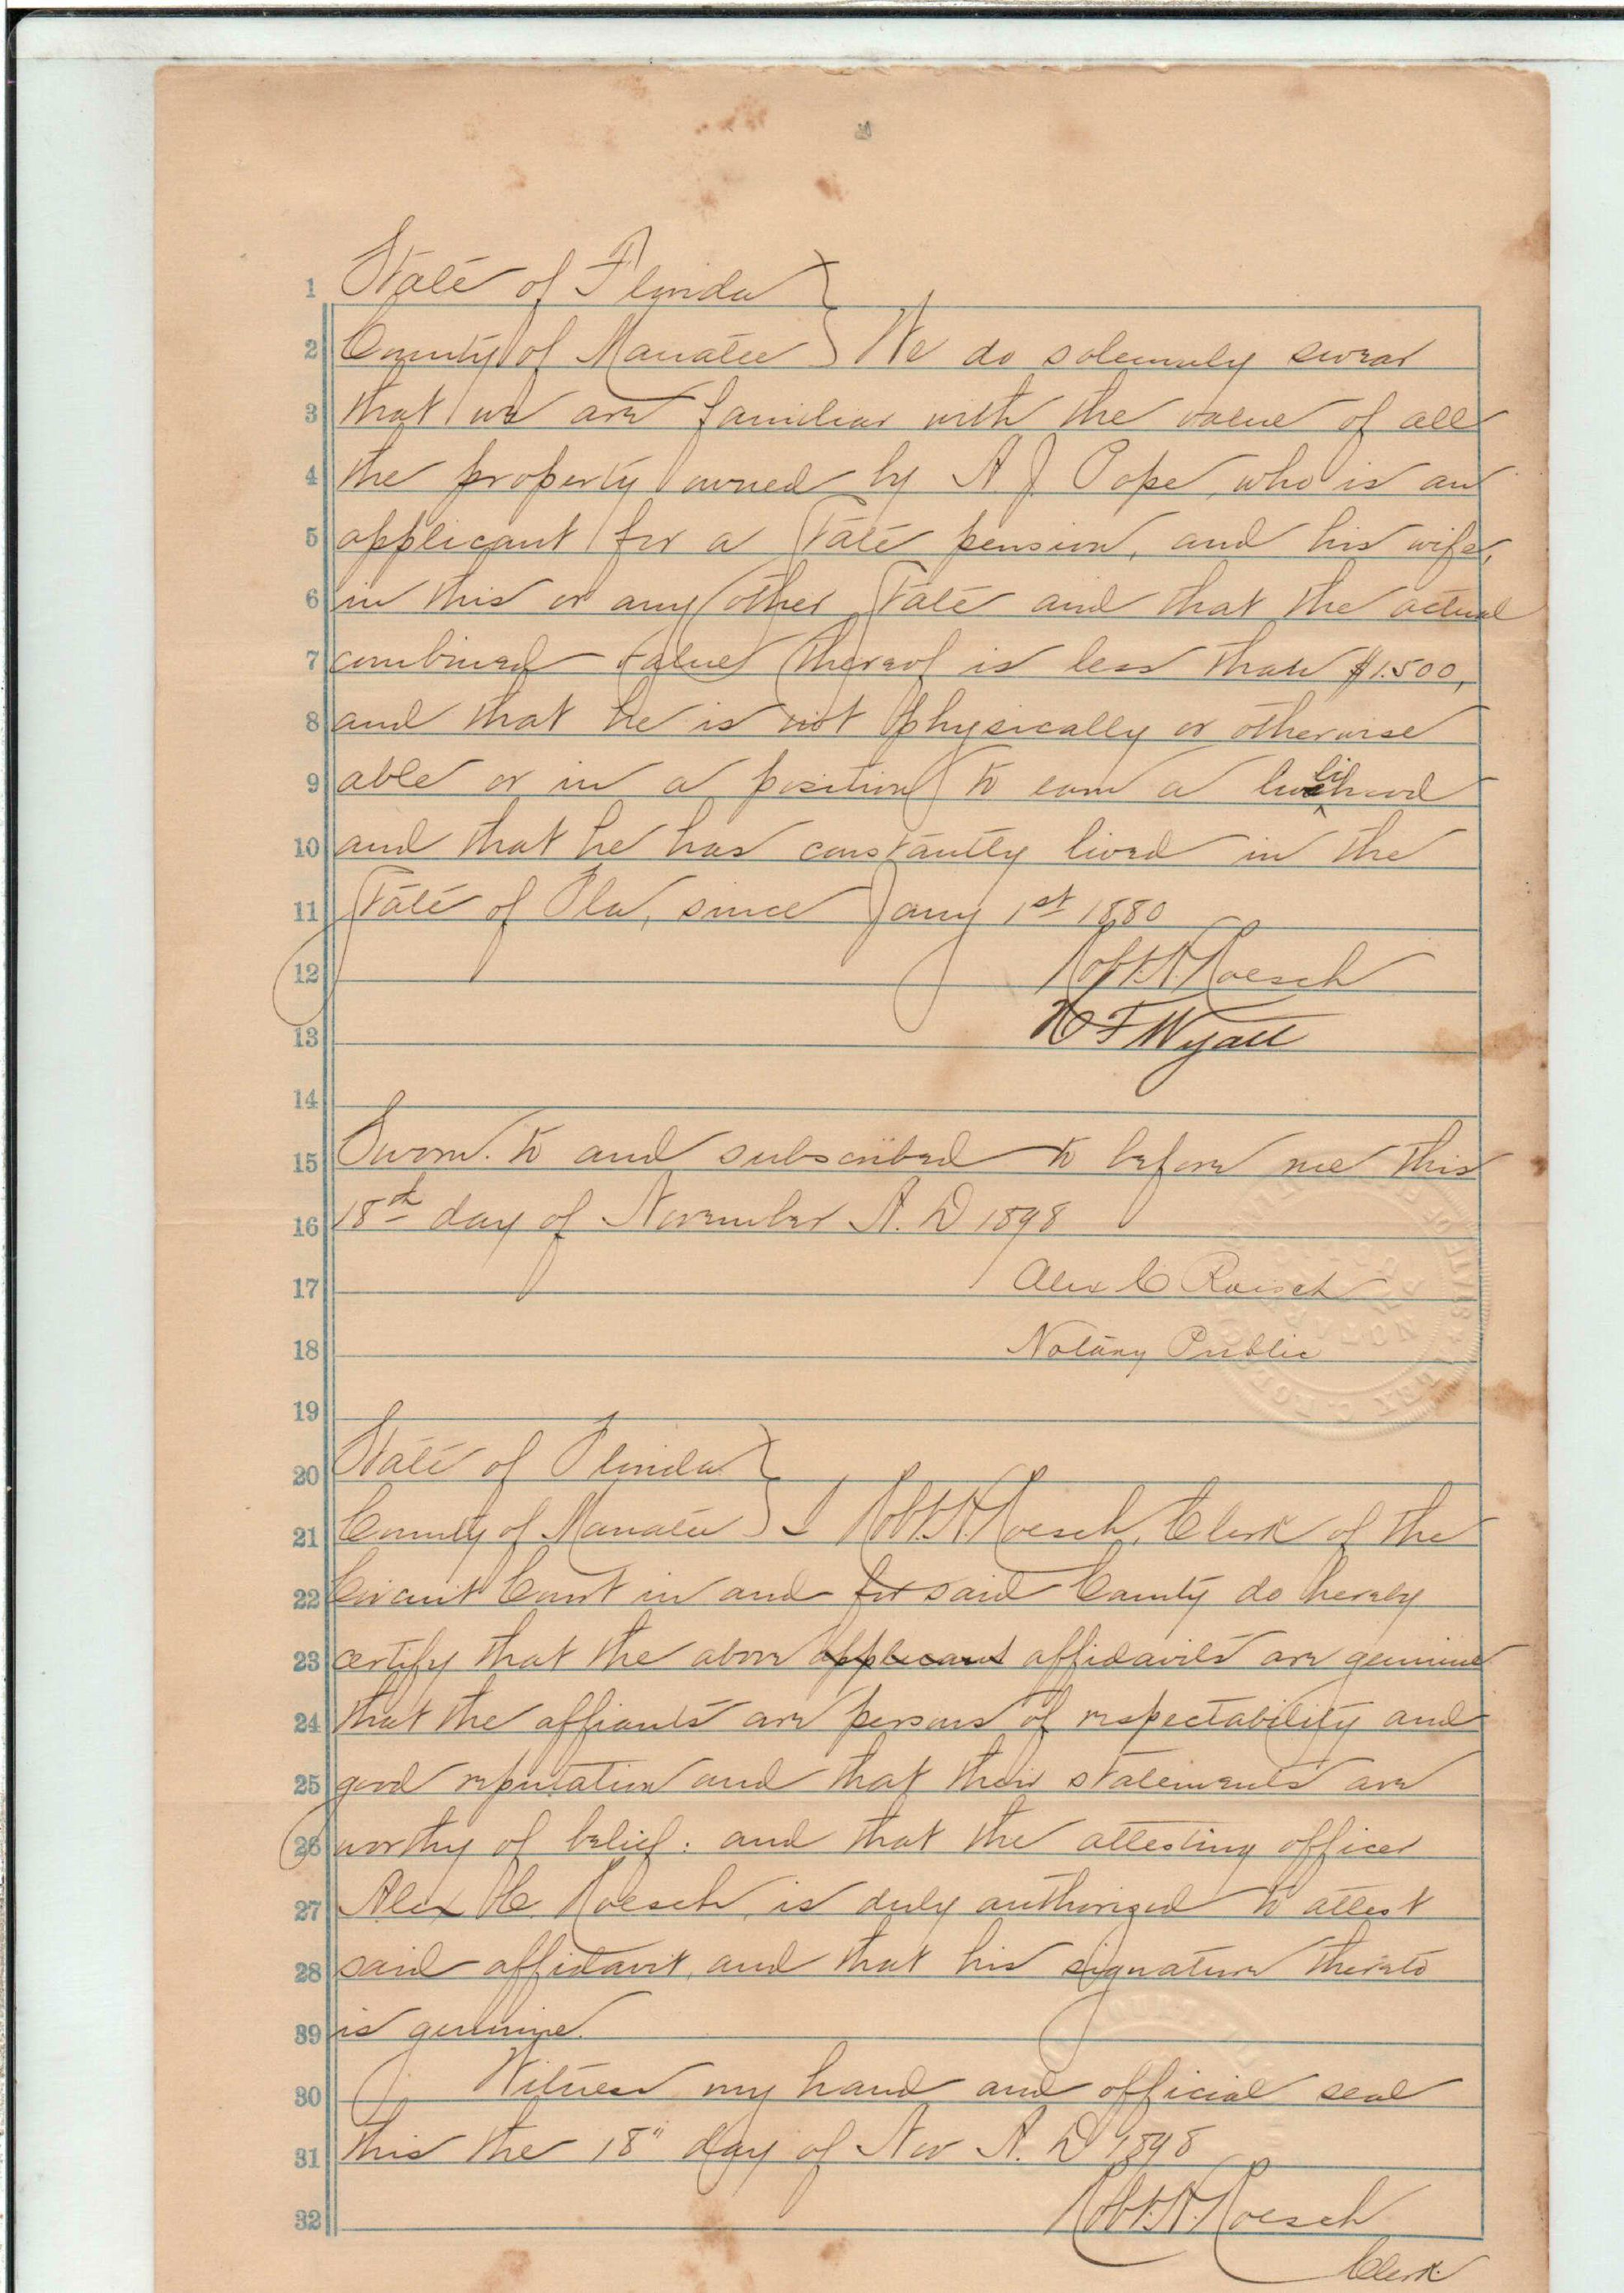 1 State of Florida }
2 County of Manatee } We do solemnly swear
3 that we are familiar with the value of all
4 the property owned by A. J. Pope, who is an
5 applicant for a State pension, and his wife,
6 in this or any other State and that the actual
7 combined value thereof is less than $1.500,
8 and that he is not physically or otherwise
9 able or in a position to earn a livelihood
10 and that he has constantly lived in the
11 State of Fla, since Jany 1st 1880
12 Robt. H. Roesch
13 F Wyatt
14
15 Sworn. to and subscribed to before me this
16 18th day of November A. D 1898
17 Alex C Roesch
18 Notary Public
19
20 State of Florida }
21 County of Manatee } I Robt. H. Roesch, Clerk of the
22 Circuit Court in and for said County do hereby
23 certify that the above applicant affidavits are genuine
24 that the affiants are persons of respectability and
25 good reputation and that their statements are
26 worthy of belief. and that the attesting officer
27 Alex C. Roesch, is duly authorized to attest
28 said affidavit, and that his signature thereto
39 is genuine.
30 Witness my hand and official seal
31 this the 18" day of Nov A. D 1898
32 Robt. H. Roesch
Clerk